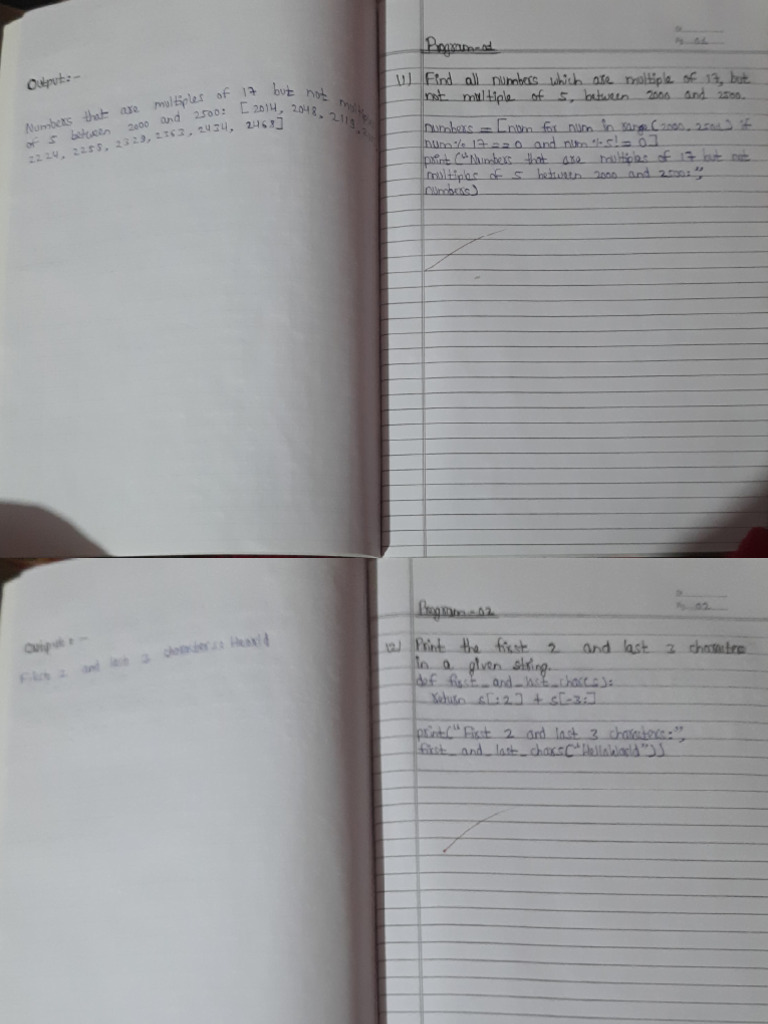 Output:-
Numbers that are multiples of 17 but not
of 5 between 2000 and 2500: [2014, 2048, 2113,
2224, 2258, 2329, 2363, 2424, 2468]
Program-01
Pg 01
(1) Find all numbers which are multiple of 17, but
not multiple of 5, between 2000 and 2500.
numbers = [num for num in range (2000, 2501) if
num % 17 == 0 and num % 5! = 0]
print ("Numbers that are multiples of 17 but not
multiples of 5 between 2000 and 2500:",
numbers)
Output:-
First 2 and last 3 characters: Herld
Program-02
Pg 02
(2) Print the first 2 and last 3 characters
in a given string.
def first_and_last_chars(s):
return s[:2] + s[-3:]
print("First 2 and last 3 characters:",
first_and_last_chars("HelloWorld"))